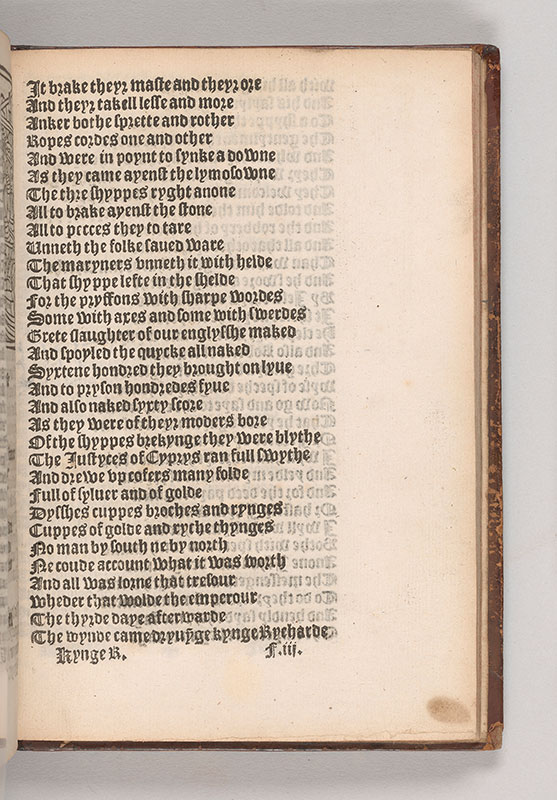 It brake theyr maste and theyr ore
And theyr takell lesse and more
Anker bothe sprette and rother
Ropes cordes one and other
And were in poynt to synke a downe
As they came ayenst the lymosowne
The thre shyppes ryght anone
All to brake ayenst the stone
All to peces they to tare
Unneth the folke saued ware
The maryners vnneth it with helde
That shyppe lefte in the shelde
For the gryffons with sharpe wordes
Some with axes and some with swerdes
Grete slaughter of our englysshe maked
And spoyled the quycke all naked
Syxtene hondred they brought on lyue
And to pryson hondredes fyue
And also naked syxty score
As they were of theyr moders bore
Of the shyppes brekynge they were blythe
The Justyces of Cyprys ran full swythe
And drewe vp cofers many folde
Full of syluer and of golde
Dysshes cuppes broches and rynges
Cuppes of golde and ryche thynges
No man by south ne by north
Ne coude account what it was worth
And all was lorne that tresour
wheder that wolde the emperour
The thyrde daye afterwarde
The wynde came dryuy̅ge kynge Rycharde
Kynge R. F.iij.